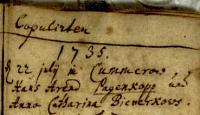 Copulirten
1735.
d 22 july in Cummerow
Hans Arend Pagenkopp und
Anna Catharina Biewerkows.